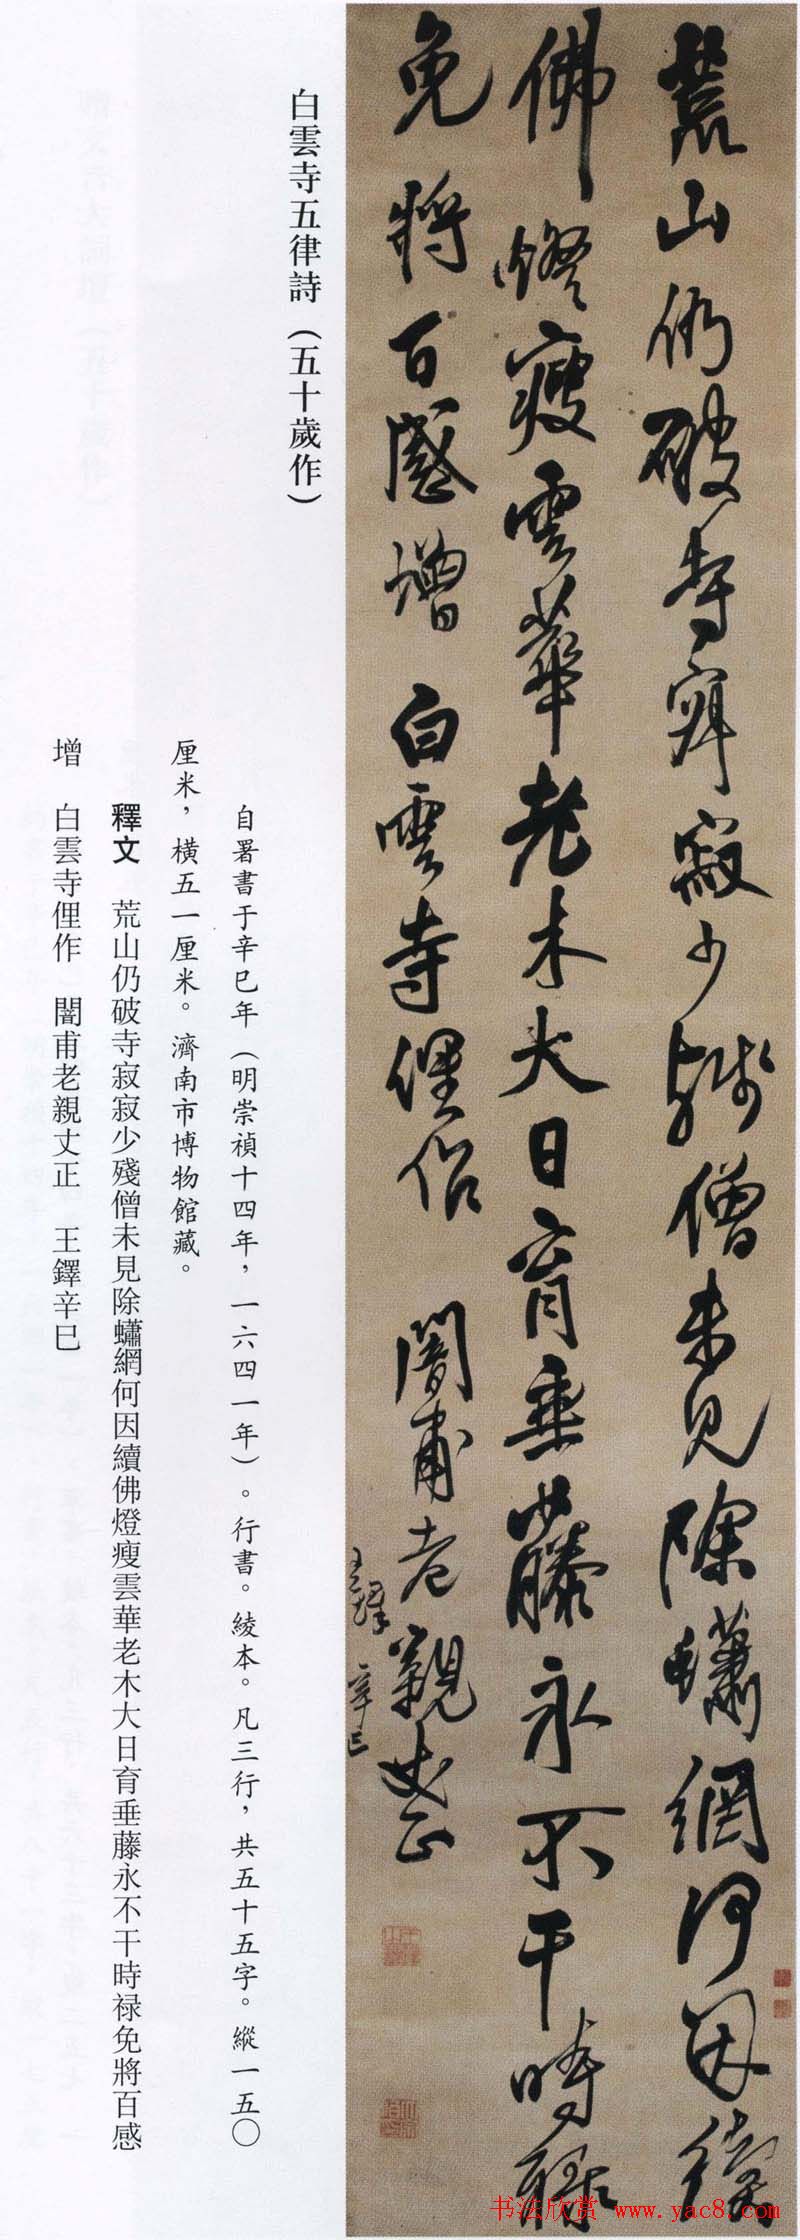 荒山仍破寺寂寂少殘僧未見除蠨網何因續
佛燈瘦雲華老木大日育垂藤永不干時祿
免將百感增 白雲寺俚作 闇甫老親丈正
王鐸 辛巳
白雲寺五律詩（五十歲作）
自署書于辛巳年（明崇禎十四年，一六四一年）。行書。綾本。凡三行，共五十五字。縱一五〇
厘米，橫五一厘米。濟南市博物館藏。
釋文 荒山仍破寺寂寂少殘僧未見除蠨網何因續佛燈瘦雲華老木大日育垂藤永不干時祿免將百感
增 白雲寺俚作 闇甫老親丈正 王鐸辛巳
书法欣赏 www.yac8.com